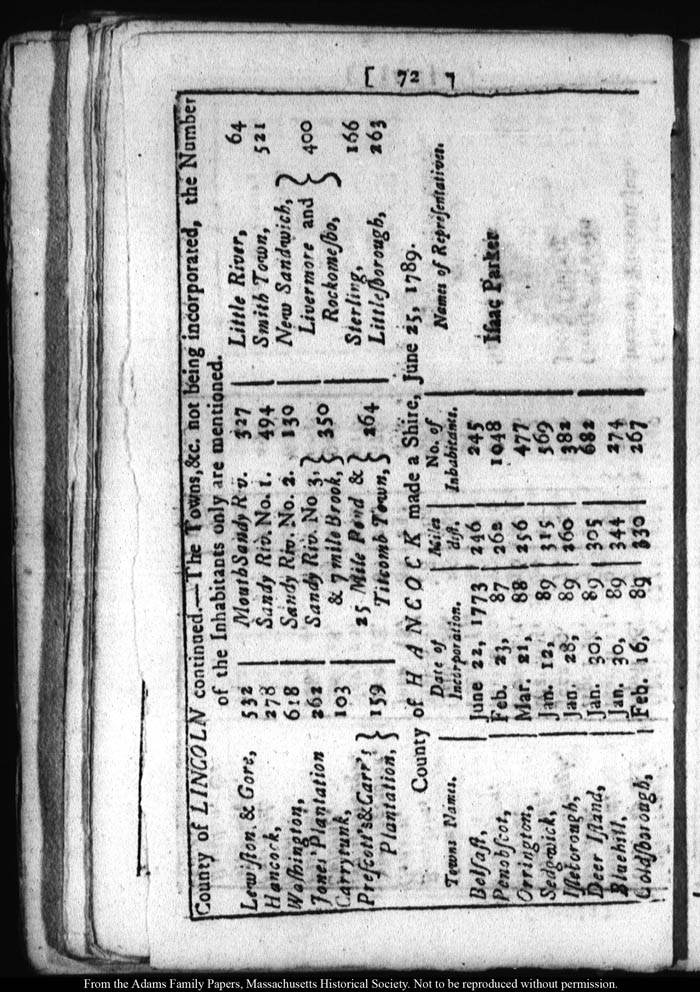 [ 72 ]
County of LINCOLN continued.—The Towns, &c. not being incorporated, the Number
of the Inhabitants only are mentioned.
Lewiſton. & Gore, 532 | Mouth Sandy Rv. 327 | Little River, 64
Hancock, 278 | Sandy Riv. No. 1. 494 | Smith Town, 521
Waſhington, 618 | Sandy Riv. No. 2. 130 | New Sandwich, }
Jones' Plantation 262 | Sandy Riv. No 3, } 350 | Livermore and } 400
Carrytunk, 103 | & 7 mile Brook, } | Rockomeſho, }
Preſcott's & Carr's } 159 | 25 Mile Pond & } 264 | Sterling, 166
Plantation, } | Titcomb Town, } | Littleſborough, 263
County of HANCOCK made a Shire, June 25, 1789.
Towns Names. | Date of | Miles | No. of | Names of Repreſentatives.
Incorporation. | diſt. | Inhabitants.
Belfaſt, | June 22, 1773 | 246 | 245
Penobſcot, | Feb. 23, 87 | 262 | 1048 | Iſaac Parker
Orrington, | Mar. 21, 88 | 256 | 477
Sedgwick, | Jan. 12, 89 | 315 | 569
Iſleborough, | Jan. 28, 89 | 260 | 382
Deer Iſland, | Jan. 30, 89 | 305 | 682
Bluehill, | Jan. 30, 89 | 344 | 274
Goldſborough, | Feb. 16, 89 | 330 | 267
From the Adams Family Papers, Massachusetts Historical Society. Not to be reproduced without permission.